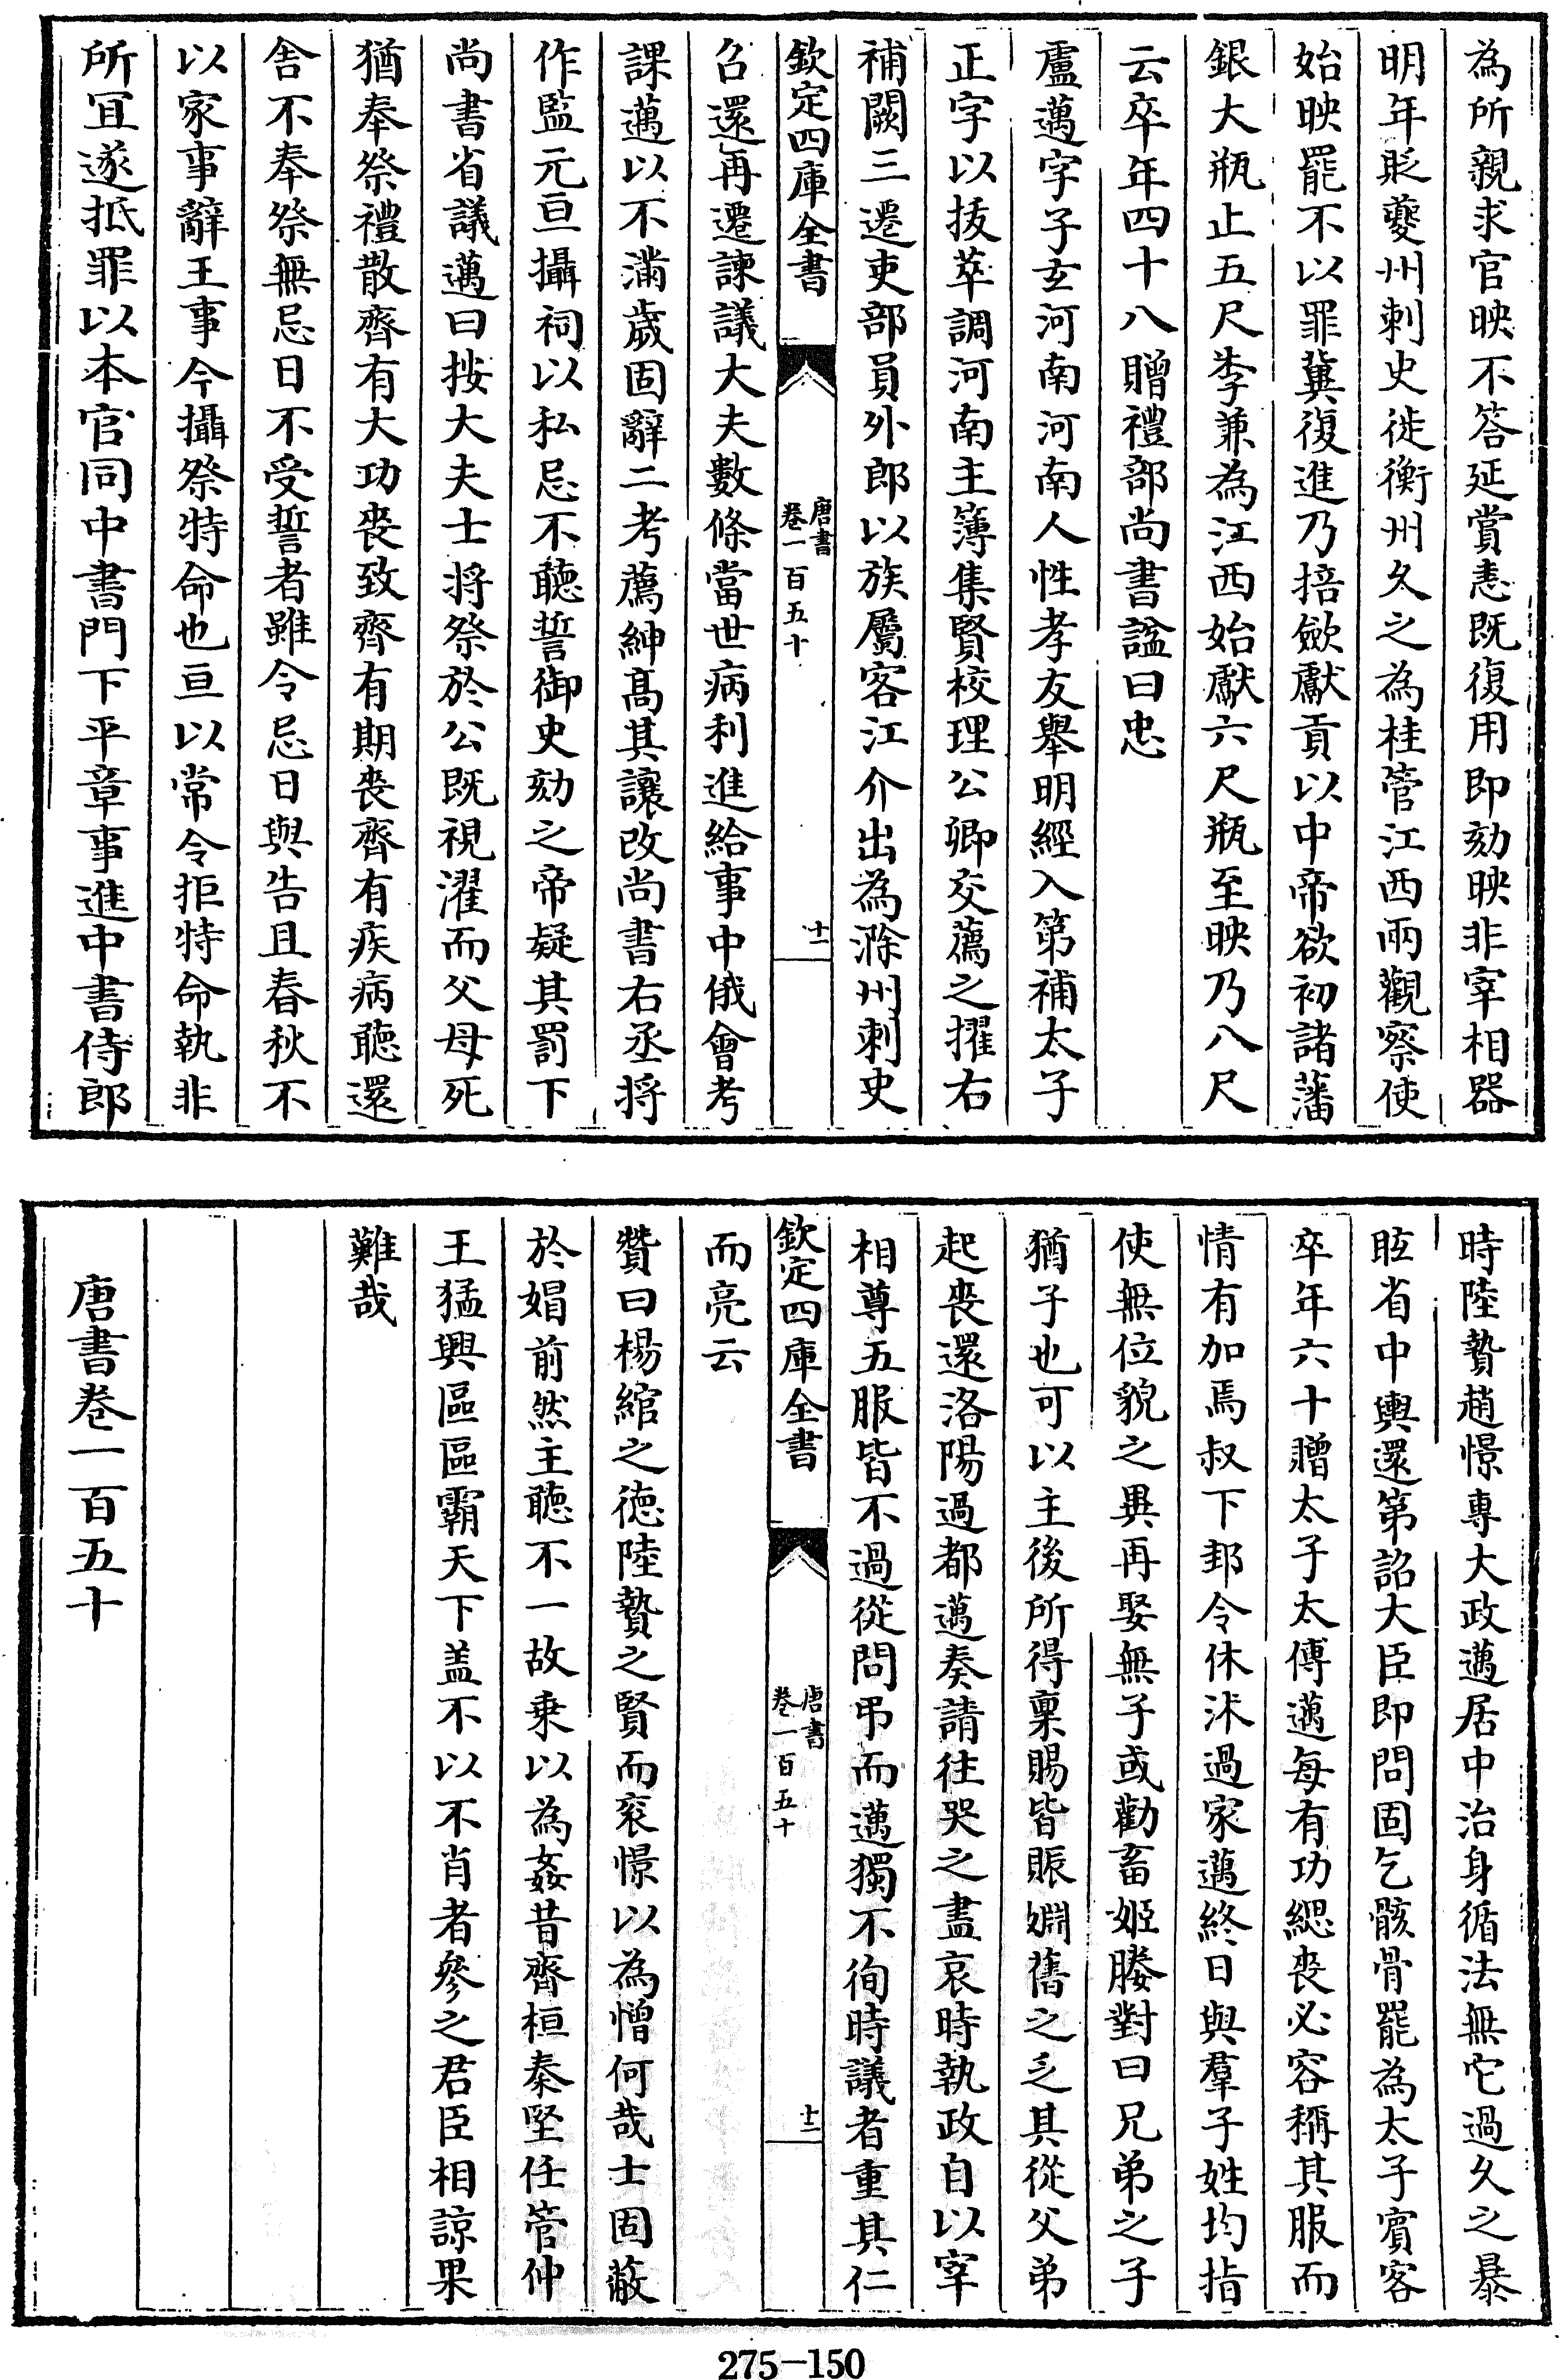 為所親求官映不答延賞恚既復用即劾映非宰相器
明年貶夔州刺史徙衡州久之為桂管江西兩觀察使
始映罷不以罪冀復進乃掊歛獻貢以中帝欲初諸藩
銀大瓶止五尺李兼為江西始獻六尺瓶至映乃八尺
云卒年四十八贈禮部尚書諡曰忠
盧邁字子玄河南河南人性孝友舉明經入第補太子
正字以拔萃調河南主簿集賢校理公卿交薦之擢右
補闕三遷吏部員外郎以族屬客江介出為滁州刺史
欽定四庫全書
唐書
卷一百五十
十一
召還再遷諫議大夫數條當世病利進給事中俄會考
課邁以不滿歲固辭二考薦紳髙其讓改尚書右丞将
作監元亘攝祠以私忌不聽誓御史劾之帝疑其罰下
尚書省議邁曰按大夫士将祭於公既視濯而父母死
猶奉祭禮散齊有大功丧致齊有期丧齊有疾病聽還
舍不奉祭無忌日不受誓者雖令忌日與告且春秋不
以家事辭王事今攝祭特命也亘以常令拒特命執非
所宜遂抵罪以本官同中書門下平章事進中書侍郎
時陸贄趙憬專大政邁居中治身循法無它過久之暴
眩省中輿還第詔大臣即問固乞骸骨罷為太子賓客
卒年六十贈太子太傅邁每有功緦丧必容稱其服而
情有加焉叔下邽令休沐過家邁終日與羣子姓均指
使無位貌之異再娶無子或勸畜姬媵對曰兄弟之子
猶子也可以主後所得稟賜皆賑婣舊之乏其從父弟
起丧還洛陽過都邁奏請往哭之盡哀時執政自以宰
相尊五服皆不過從問弔而邁獨不徇時議者重其仁
欽定四庫全書
唐書
卷一百五十
十二
而亮云
贊曰楊綰之徳陸贄之賢而衮憬以為憎何哉士固蔽
於娼前然主聽不一故乗以為姦昔齊桓秦堅任管仲
王猛興區區霸天下盖不以不肖者參之君臣相諒果
難哉
唐書卷一百五十
275-150